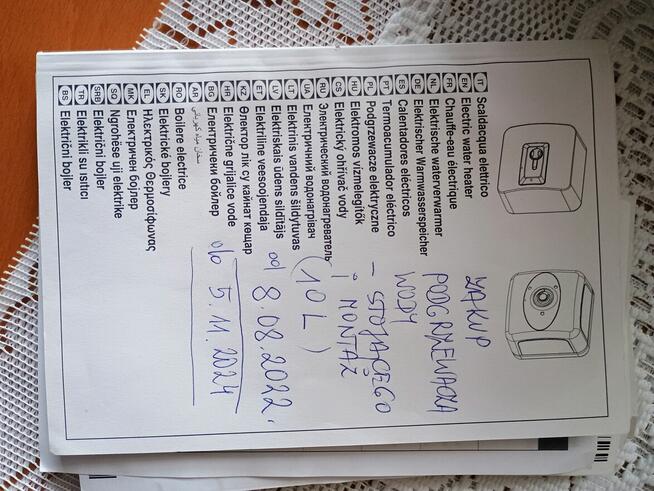 IT Scaldacqua elettrico
EN Electric water heater
FR Chauffe-eau électrique
NL Elektrische waterverwarmer
DE Elektrischer Warmwasserspeicher
ES Calentadores eléctricos
PT Termoacumulador eléctrico
PL Podgrzewacze elektryczne
HU Elektromos vízmelegítők
CS Elektrický ohřívač vody
RU Электрический водонагреватель
UA Електричний водонагрівач
LT Elektrinis vandens šildytuvas
LV Elektriskais ūdens sildītājs
ET Elektriline veesoojendaja
KZ Өлектор лік су кайнат кещар
HR Električne grijalice vode
BG Електрически бойлер
AR
RO Boilere electrice
SK Elektrické bojlery
EL Ηλεκτρικός Θερμοσίφωνας
MK Електричен бојлер
SQ Ngrohëse uji elektrike
SRB Električni bojler
TR Elektrikli su ısıtıcı
BS Električni bojler
ZAKUP
PODGRZEWACZA
WODY
- STOJĄCEGO
i MONTAŻ
(10 L)
od 8.08.2022.
do 5.11.2024